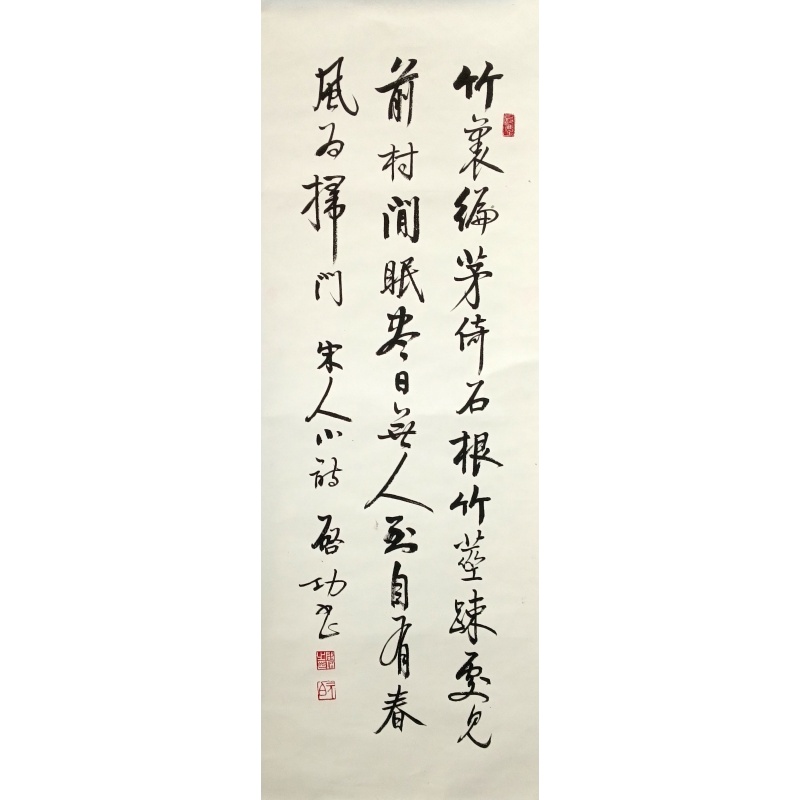 竹裏編茅倚石根竹莖疎處見
前村閒眠盡日無人到自有春
風為掃門 宋人小詩 啓功書